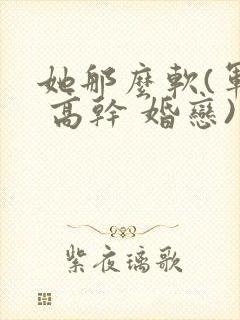 她那麼軟(軍
高幹 婚戀)
紫夜璃歌